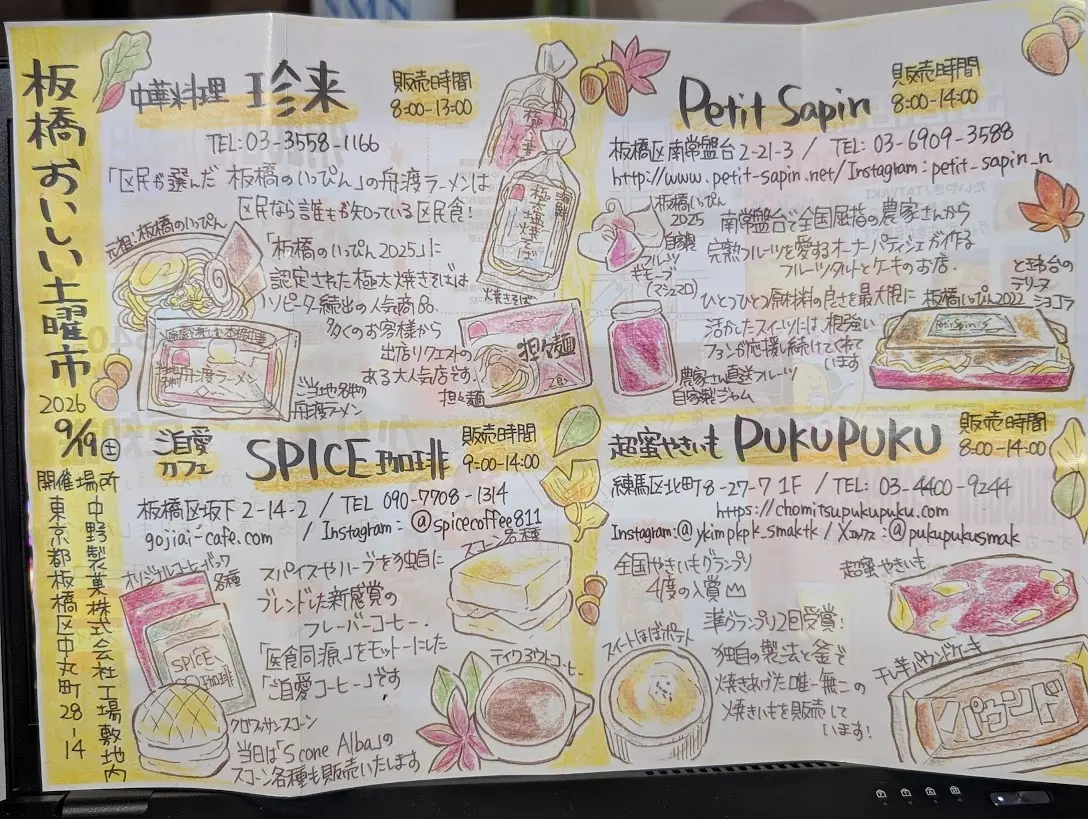 板橋おいしい土曜市
2026
9/19㊏
開催場所
東京都板橋区中丸町28-14
中野製菓株式会社工場敷地内
中華料理 珍来
販売時間
8:00-13:00
TEL:03-3558-1166
「区民が選んだ 板橋のいっぴん」の舟渡ラーメンは
区民なら誰もが知っている区民食!
元祖:板橋のいっぴん
「板橋のいっぴん2025」に
認定された極太焼きそばは
リピーター続出の人気商品。
多くのお客様から
出店リクエストの
ある大人気店です。
焼きそば
担々麺
2食
担々麺
舟渡ラーメン
ご当地名物
舟渡ラーメン
Petit Sapin
販売時間
8:00-14:00
板橋区南常盤台2-21-3 / TEL: 03-6909-3588
http://www.petit-sapin.net/Instagram:petit_sapin_n
板橋いっぴん
2025
自家製
フルーツ
ギモーブ
(マシュマロ)
南常盤台で全国屈指の農家さんから
完熟フルーツを愛するオーナーパティシエが作る
フルーツタルトとケーキのお店。
ひとつひとつ原材料の良さを最大限に
活かしたスイーツには、根強い
ファンが応援し続けてくれて
います
農家さん直送フルーツ
自家製ジャム
ときわ台の
テリーヌ
ショコラ
板橋いっぴん2022
ご自愛
カフェ
SPICE珈琲
販売時間
9:00-14:00
板橋区坂下2-14-2 / TEL 090-7708-1314
gojiai-cafe.com / Instagram: @spicecoffee811
オリジナルコーヒーバッグ
各種
SPICE
珈琲
スパイスやハーブを独自に
ブレンドした新感覚の
フレーバーコーヒー。
「医食同源」をモットーにした
「ご自愛コーヒー」です
スコーン各種
テイクアウトコーヒー
クロッカンスコーン
当日は「Scone Alba」の
スコーン各種も販売いたします
超蜜やきいも PUKUPUKU
販売時間
8:00-14:00
練馬区北町8-27-7 1F / TEL: 03-4400-9244
https://chomitsupukupuku.com
Instagram:@ykimpkpk_smaktk / X:@pukupukusmak
全国やきいもグランプリ
4度の入賞
準グランプリ2回受賞!
独自の製法と釜で
焼きあげた唯一無二の
焼きいもを販売して
います!
超蜜やきいも
スイートほぼポテト
干し芋パウンドケーキ
パウンド